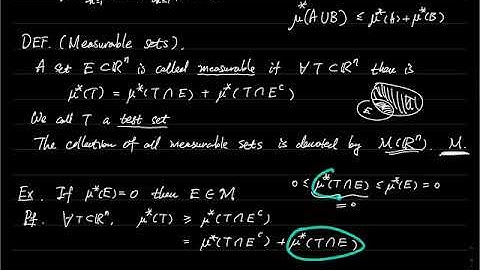 μ*(A∪B) ≤ μ*(A)+μ*(B)
DEF. (Measurable sets).
A set E⊂ℝⁿ is called measurable if ∀T⊂ℝⁿ there is
μ*(T) = μ*(T∩E) + μ*(T∩Eᶜ)
E
We call T a test set
The collection of all measurable sets is denoted by M(ℝⁿ). M.
0 ≤ μ*(T∩E) ≤ μ*(E) = 0
= 0
Ex. If μ*(E)=0 then E∈M
Pf. ∀T⊂ℝⁿ, μ*(T) ≥ μ*(T∩Eᶜ)
= μ*(T∩Eᶜ) + μ*(T∩E)